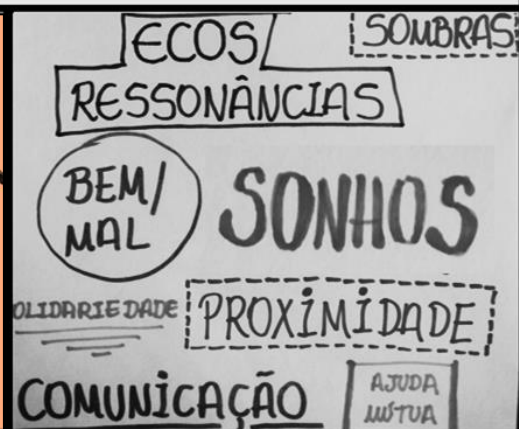 ECOS/
SOMBRAS
RESSONÂNCIAS
BEM/
MAL
SONHOS
OLIDARIEDADE
PROXIMIDADE
COMUNICAÇÃO
AJUDA
MÚTUA